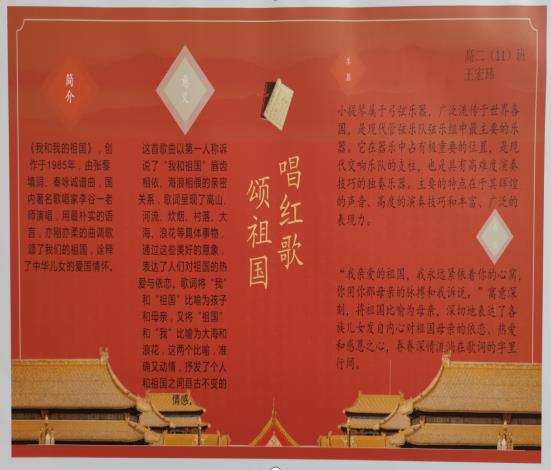 简
介
《我和我的祖国》，创
作于1985年，由张藜
填词、秦咏诚谱曲，国
内著名歌唱家李谷一老
师演唱，用最朴实的语
言，亦刚亦柔的曲调歌
颂了我们的祖国，诠释
了中华儿女的爱国情怀。
意
义
这首歌曲以第一人称诉
说了“我和祖国”唇齿
相依、海浪相偎的亲密
关系，歌词呈现了高山、
河流、炊烟、村落、大
海、浪花等具体事物，
通过这些美好的意象，
表达了人们对祖国的热
爱与依恋。歌词将“我”
和“祖国”比喻为孩子
和母亲，又将“祖国”
和“我”比喻为大海和
浪花，这两个比喻，准
确又动情，抒发了个人
和祖国之间亘古不变的
情感。
唱红歌
颂祖国
乐
器
高二（11）班
王宏玮
小提琴属于弓弦乐器，广泛流传于世界各
国，是现代管弦乐队弦乐组中最主要的乐
器。它在器乐中占有极重要的位置，是
现代交响乐队的支柱，也是具有高难度演奏
技巧的独奏乐器。主要的特点在于其辉煌
的声音、高度的演奏技巧和丰富、广泛的
表现力。
“我亲爱的祖国，我永远紧依着你的心窝，
你用你那母亲的脉搏和我诉说。”寓意深
刻，将祖国比喻为母亲，深切地表达了各
族儿女发自内心对祖国母亲的依恋、热爱
和感恩之心，眷眷深情流淌在歌词的字里
行间。